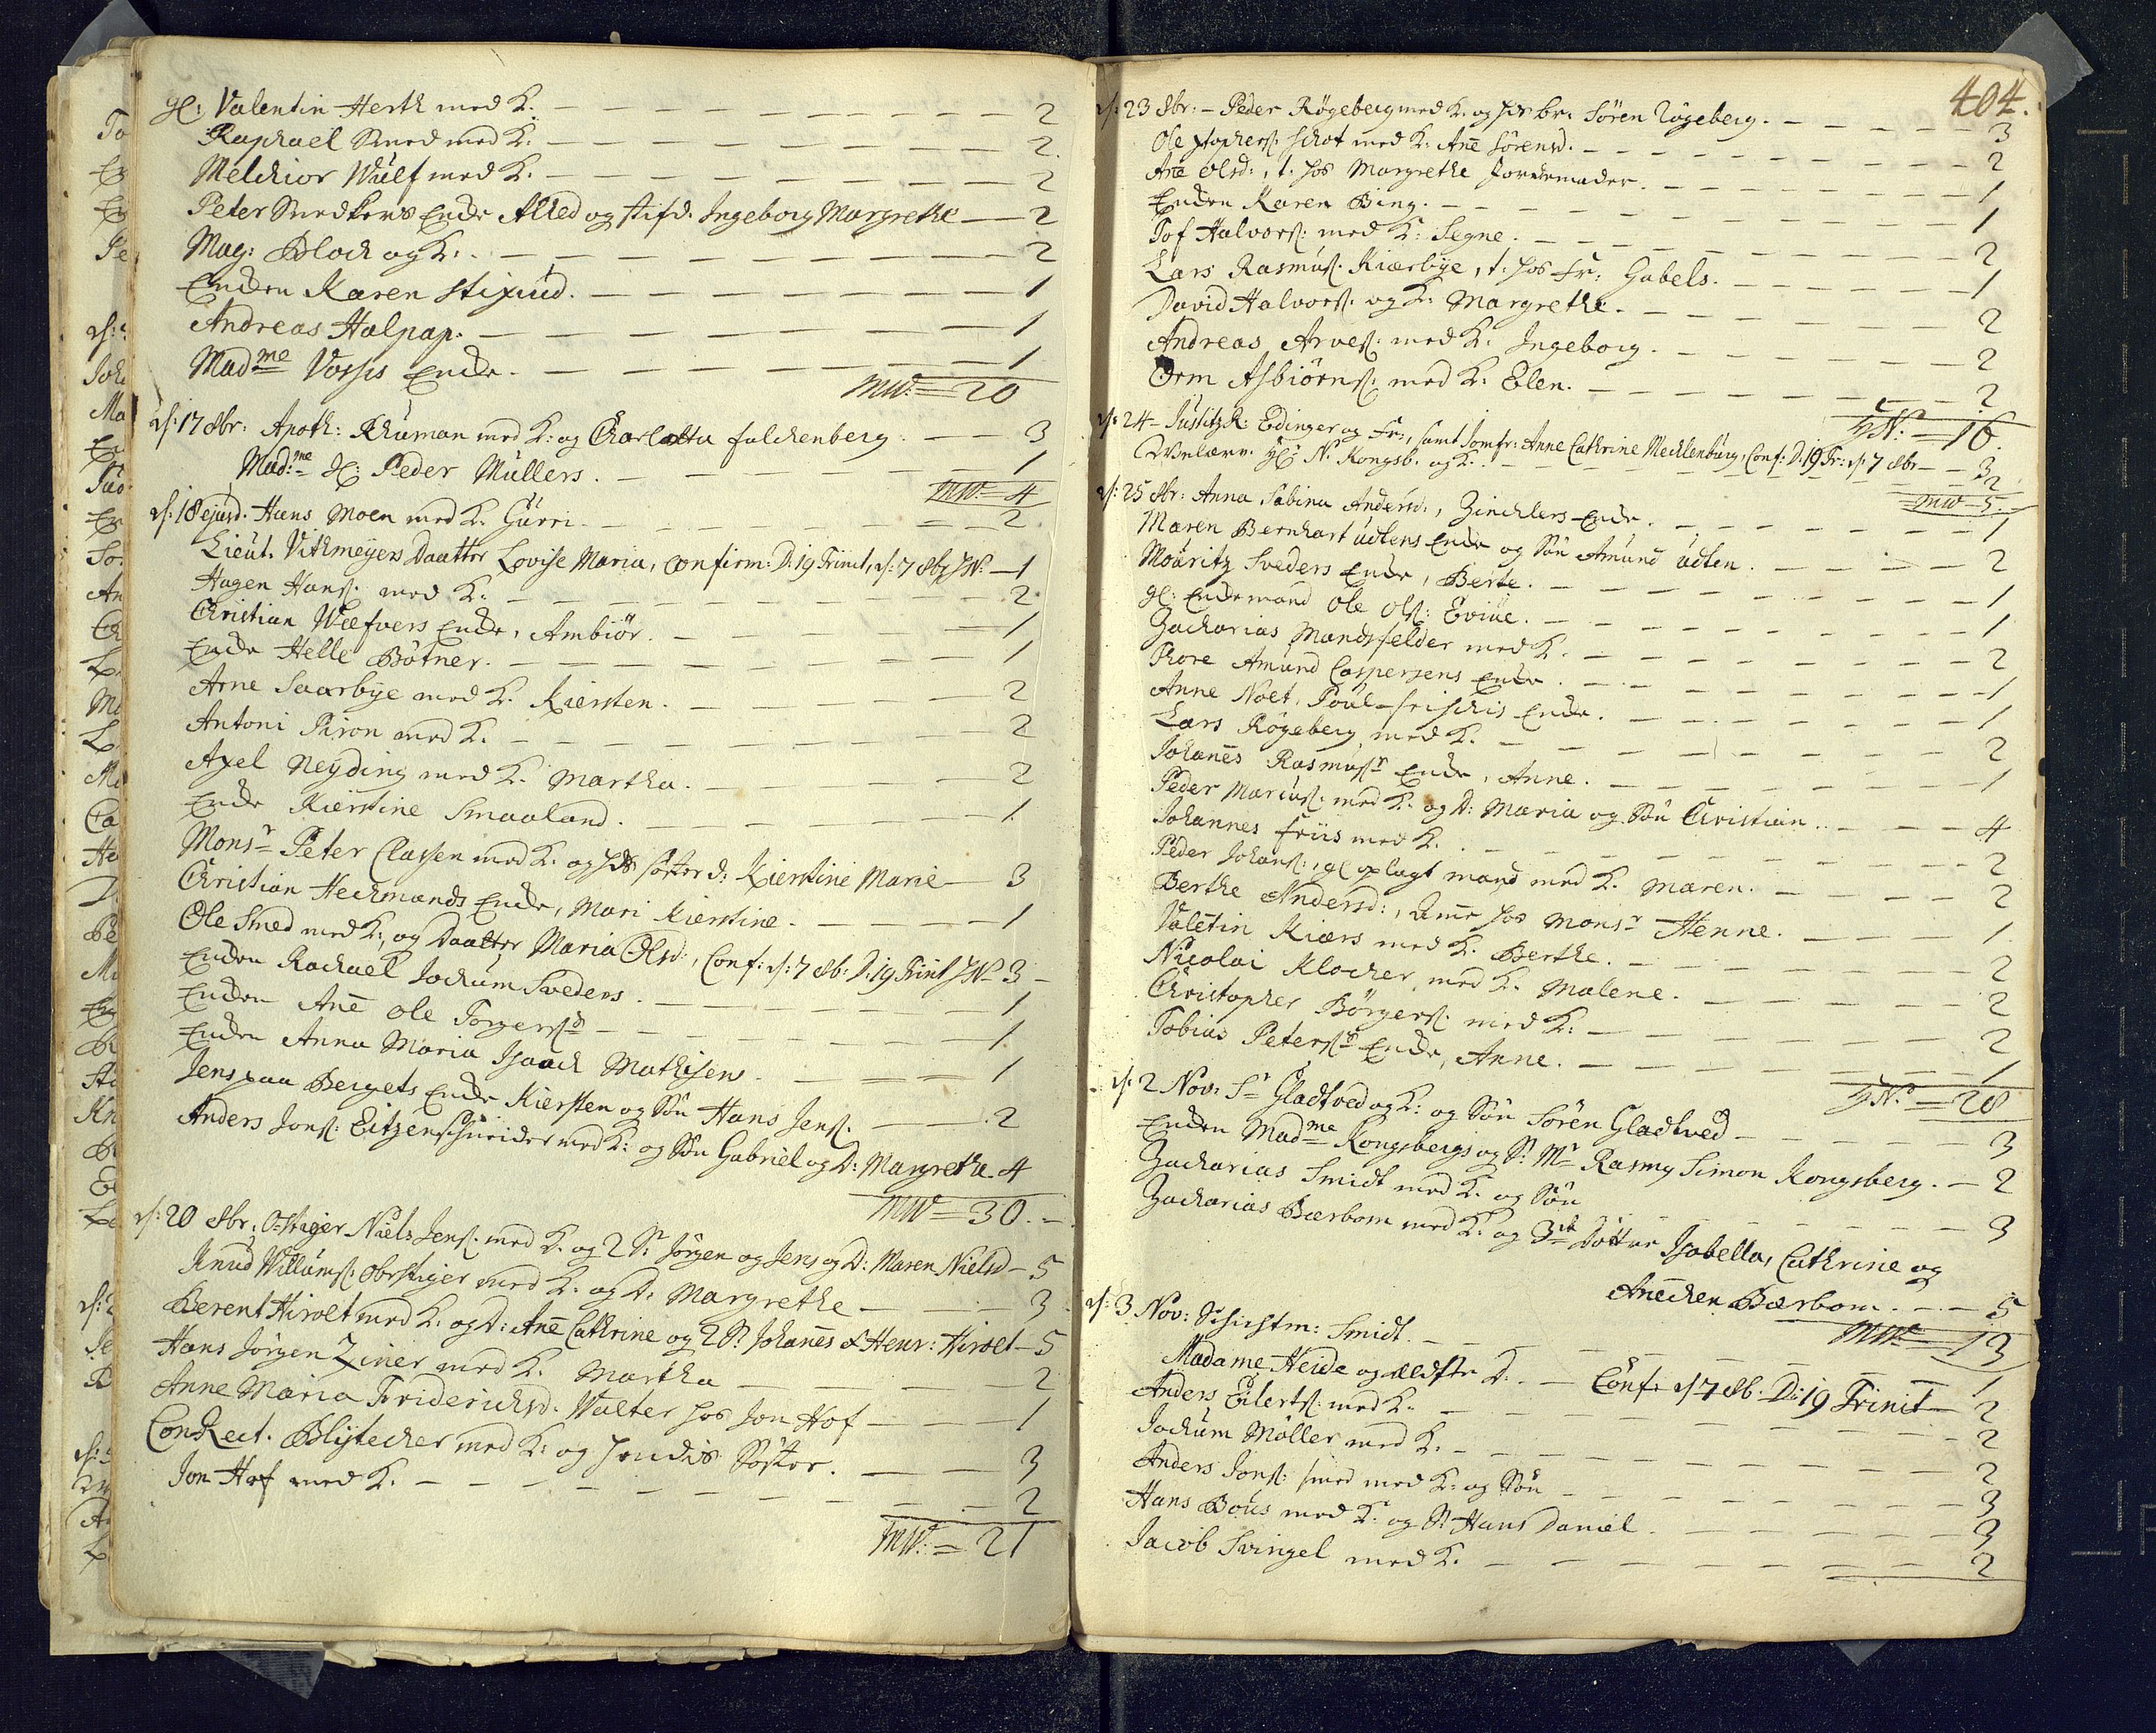 gl: Valentin Herth med K. 2
Raphael Smed med K. 2
Melchior Wulf med K. 2
Peter Snedkers Encke Alhed og stifd. Ingeborg Margrethe 2
Mag: Bloch og K. 2
Encken Karen Stixrud. 1
Andreas Halpap. 1
Mad.me Vosses Encke. 1
20
d: 17 8br: Apoth: Schuman med K: og Charlotta Falchenberg. 3
Mad:me Peder Müllers. 1
4
d: 18 ejusd. Hans Moen med K. Gurri. 2
Lieut. Vithmeyers Daatter Lovise Maria, Confirm: D. 19 Trinit, d: 7 8br 1
Hagen Hans. med K. 2
Christian Wæfvers Encke, Ambiør. 1
Encke Helle Bötner. 1
Arne Saarbye med K. Kiersten. 2
Antoni Piron med K. 2
Axel Neyding med K. Martha. 2
Encke Kierstine Smaaland. 1
Monsr Peter Classen med K. og søster d: Kierstine Marie 3
Christian Heckmands Encke, Mari Kierstine. 1
Ole Smed med K., og Daatter Maria Olsd:, Conf: d: 7 8b: D. 19 Trinit 3
Encken Rachael Jochum Sveders. 1
Encken Anē Ole Torgers. 1
Encken Anna Maria Isaach Mathisens. 1
Jens paa Bergets Encke Kiersten og Søn Hans Jens. 2
Anders Jons: Eitzenschneider med K: og Søn Gabriel og D: Margrethe. 4
30.
d: 20 8br: O-stiger Niels Jens. med K. og 2 S: Jørgen og Jens og D: Maren Nielsd 5
Knud Willums. Oberstiger med K. og D. Margrethe 3
Berent Hirolt med K. og D: Anē Cathrine og 2 S: Johanēs & Henr: Hirolt 5
Hans Jørgen Ziner med K. Martha 2
Anne Maria Friderichsd. Walter hos Jon Hof 1
ConRect. Blytecher med K: og Søster. 3
Jon Hof med K. 2
21
404.
d: 23 8br: Peder Røgeberg med K. og br: Søren Røgeberg. 3
Ole Xstophers. Schot med K: Anē Sørensd. 2
Anē Olsd:, t. hos Margrethe Jordemoder. 1
Encken Karen Bing. 1
Tof Halvors: med K: Segne. 2
Lars Rasmus. Kiærbye, t. hos Fr: Gabels. 1
David Halvors: og K: Margrethe. 2
Andreas Arves. med K. Ingeborg. 2
Orm Asbiørns. med K: Elen. 2
16
d: 24 Justitz R: Edinger og Fr:, samt Jomfr: Anne Cathrine Mechlenburg, Conf: D. 19 Tr: d. 7 8br 3
N. Kongsb. og K. 2
5.
d: 25 8br: Anna Sabina Andersd., Zinchlers Encke. 1
Maren Bernhart Udtens Encke og Søn Amund Udten. 2
Mouritz Sveders Encke, Berte. 1
gl: Enckemand Ole Ols: Eviue. 1
Zacharias Mandsfelder med K. 2
Thore Amund Caspersens Encke. 1
Anne Noet, Poul Encke. 1
Lars Røgeberg med K. 2
Johanēs Rasmus Encke, Anne. 1
Peder Marcus. med K. og D: Maria og Søn Christian. 4
Johannes Friis med K. 2
Peder Johans:, gl oplagt mand med K. Maren. 2
Berthe Andersd:, Amme hos Monsr Henne. 1
Valētin Kiærs med K. Berthe. 2
Nicolai Klocker, med K. Malene. 2
Christopher Børgers. med K: 2
Tobias Peters Encke, Anne. 1
28
d: 2 Nov: Sr Gladtved og K: og Søn Søren Gladtved 3
Encken Mad.me Kongsbergs og S: Mr Rasmus Simon Kongsberg. 2
Zacharias Smidt med K. og Søn 3
Zacharias Bærbom med K: og 3de Døttre Isabella, Cathrine og
Anēchen Bærbom. 5
13
d: 3 Nov: Schichtm: Smidt. 1
Madame Heide og ældste D. Conf. d. 7 8b. D: 19 Trinit 2
Anders Eilerts. med K. 2
Jochum Møller med K. 2
Anders Jons: smed med K: og Søn 3
Hans Bous med K: og S: Hans Daniel 3
Jacob Svingel med K. 2